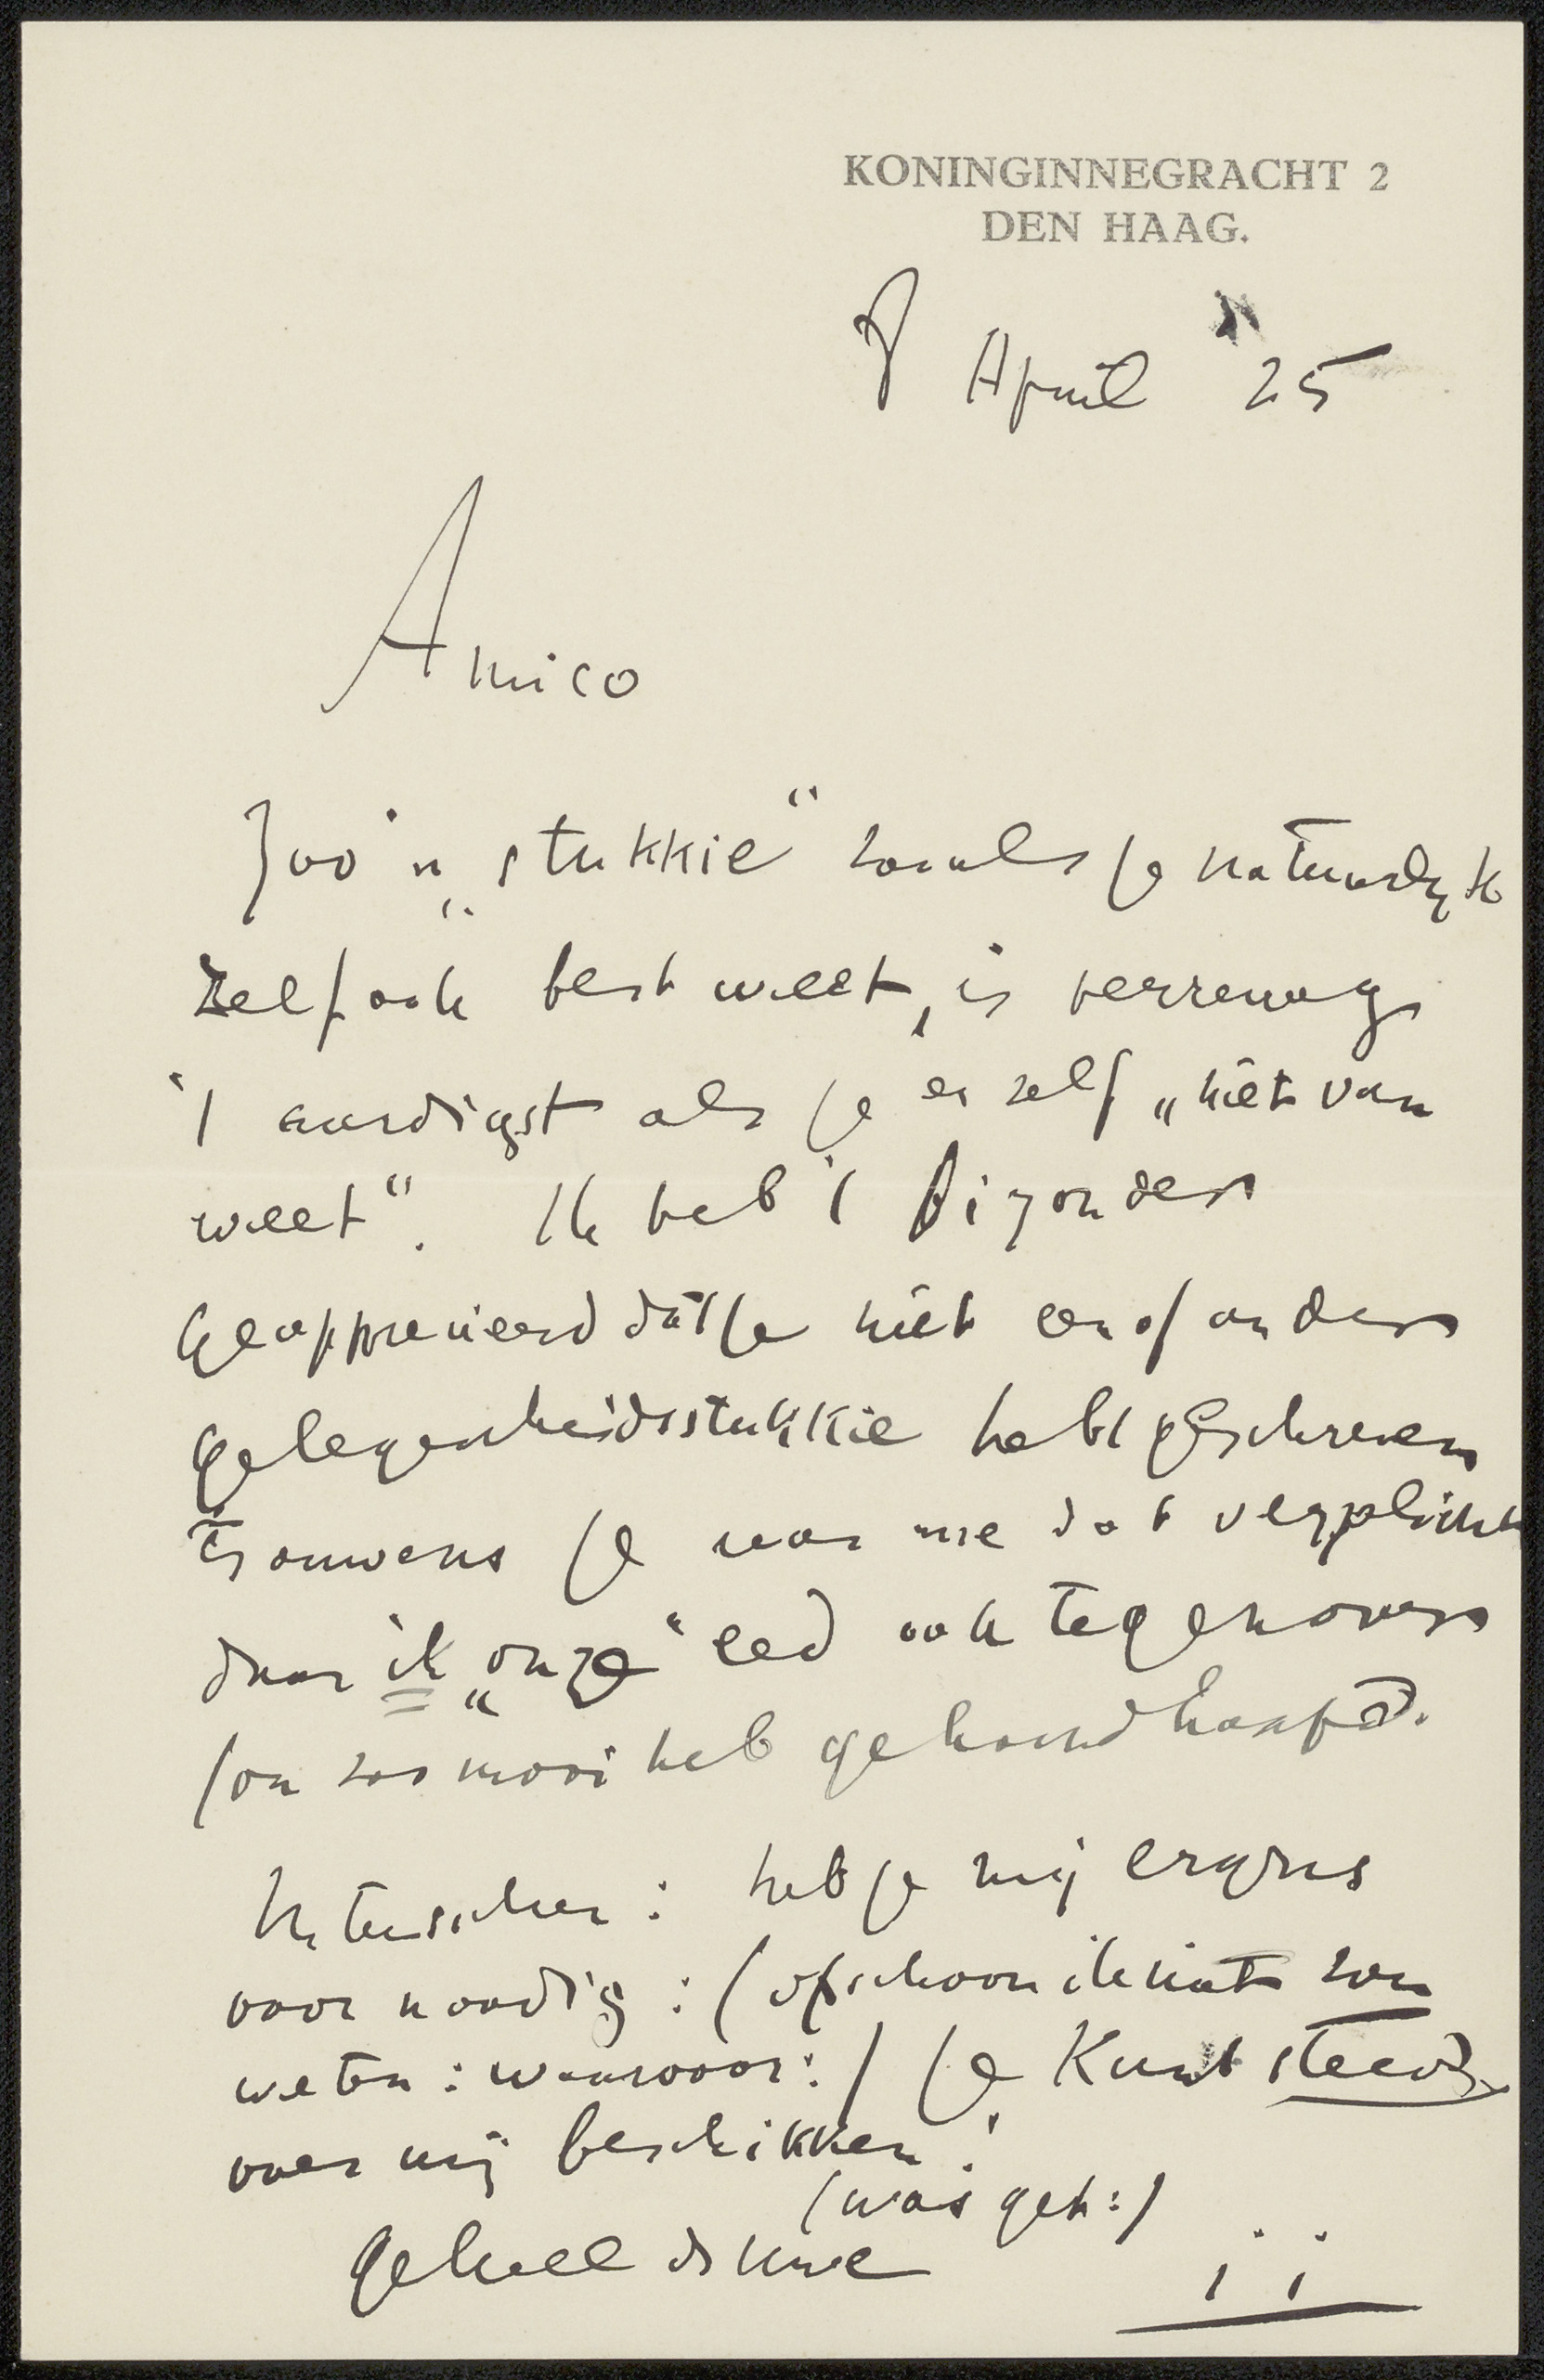 KONINGINNEGRACHT 2
DEN HAAG.
8 April 25
Amico
Zoo'n „stukkie“ zooals je natuurlyk
zelf ook best weet, is verreweg
't aardigst als je er zelf „niet van
weet“. Ik heb 't bizonder
geapprecieerd dat je niet een of ander
gelegenheidsstukkie hebt geschreven
Trouwens je was me dat verplicht
daar ik „onze“ eed ook tegenover
jou zoo mooi heb gehandhaafd.
Intusschen: heb je mij ergens
voor noodig: (ofschoon ik niet zou
weten: waarvoor:) je kunt steeds
over mij beschikken!
(was get:)
geheel de uwe